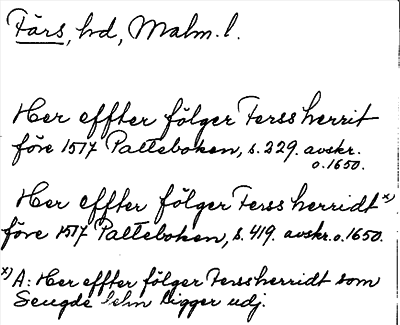 Färs, hd, Malm. l.
Her effter fölger Ferss herrit
före 1517 Palteboken, s. 229. avskr.
o. 1650.
Her effter fölger Ferss herridt x)
före 1517 Palteboken, s. 419. avskr. o. 1650.
x) A: Her effter fölger Ferss herridt som
Seugde Lehn ligger udj.